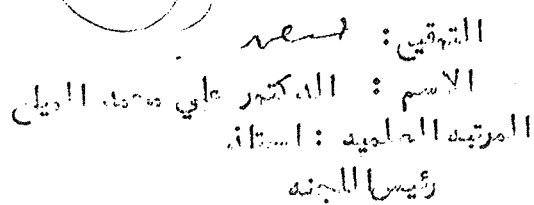 التوقيع:
الاسم : الدكتور علي محمد المياح
المرتبه العلميه : استاذ
رئيس اللجنه